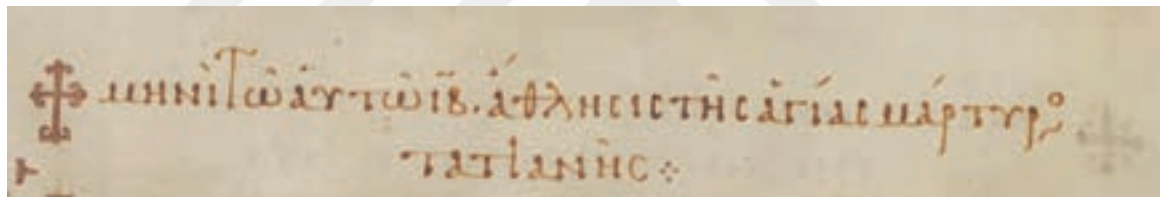 ✢ μηνὶ τῶ ἀυτῶ ιβ. ἄθλησις τῆς ἁγίας μάρτυρο
τατιανῆς ⁘